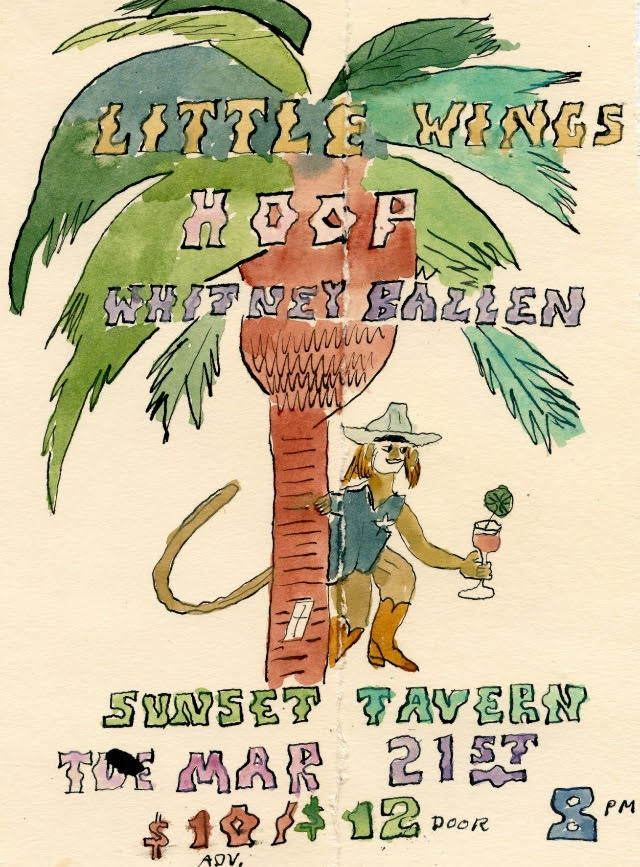 LITTLE WINGS
HOOP
WHITNEY BALLEN
SUNSET TAVERN
TUE MAR 21ST
$10/$12 DOOR 8PM
ADV.